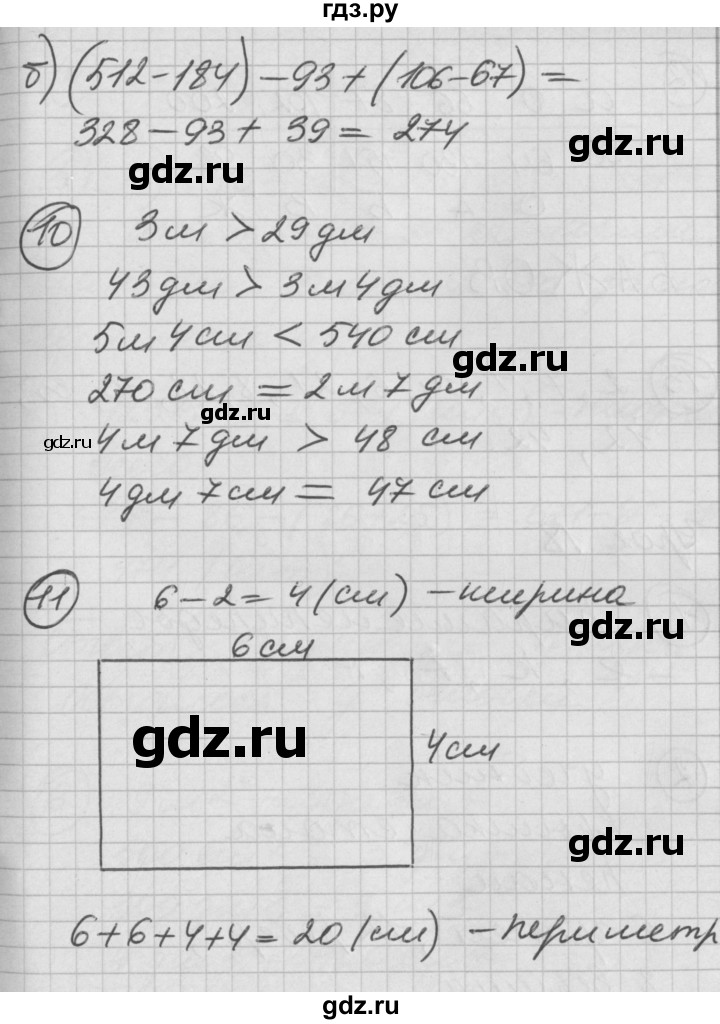 гдз.ру
б) (512-184) - 93 + (106-67) =
328 - 93 + 39 = 274
gdz.ru
gdz.ru
10 3м > 29дм
43дм > 3м 4дм
5м 4см < 540 см
gdz.ru
270 см = 2м 7дм
gdz.ru
gdz.ru
4м 7дм > 48 см
4дм 7см = 47 см
11 6 - 2 = 4 (см) - ширина
gdz.ru
6см
gdz.ru
4см
gdz.ru
6+6+4+4 = 20 (см) - периметр
gdz.ru